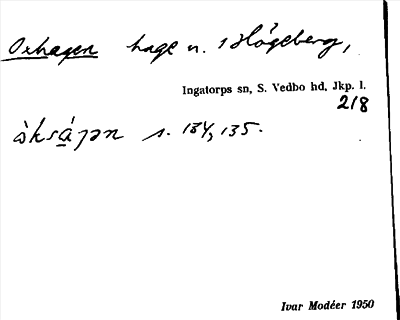 Oxhagen hage u. 1 Högeberg,
Ingatorps sn, S. Vedbo hd, Jkp. l.
218
s. 134, 135.
Ivar Modéer 1950